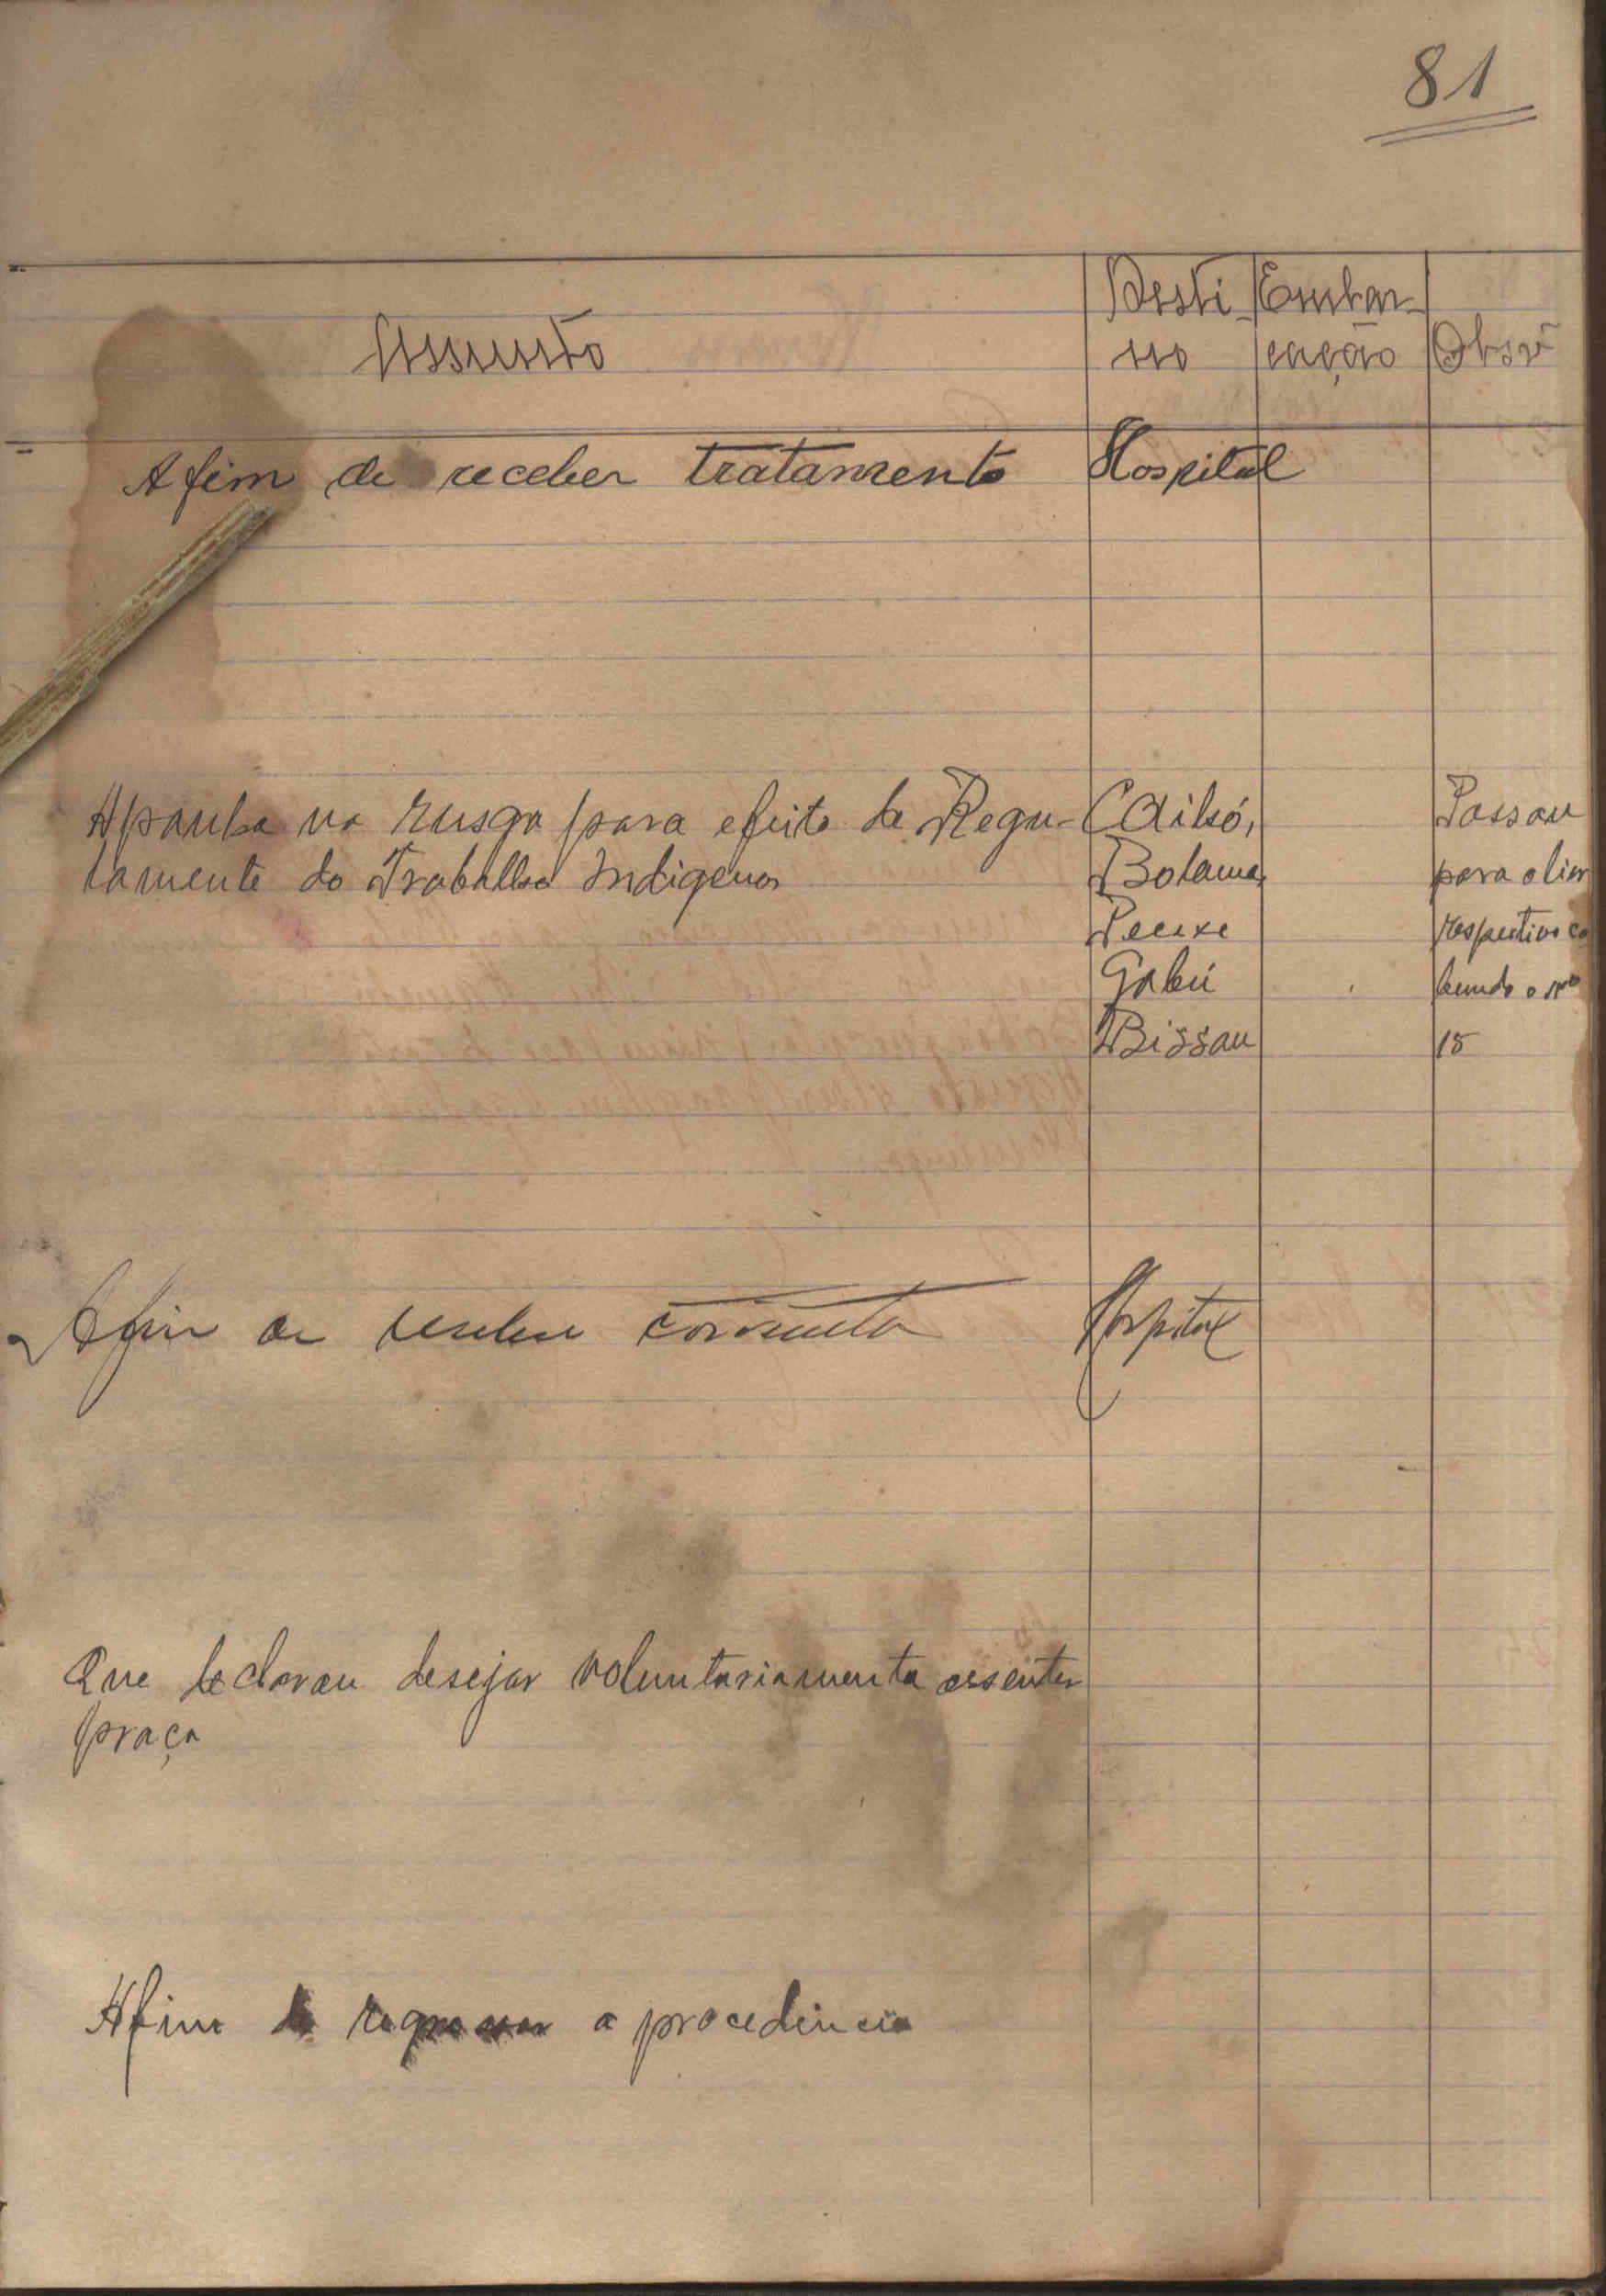 81
Assunto
Desti-
no
Embar-
cação
Obsv
Afim de receber tratamento Hospital
Apanha na rusga para efeito do Regu-
lamento do Trabalho Indigena
Bolama,
Gabú
Bissau
Passou
para o liv
respectivo ca
bendo o nº
15
Afim de receber consulta Hospital
Que declarou desejar voluntariamente assentar
praça
Afim de regressar a procedencia